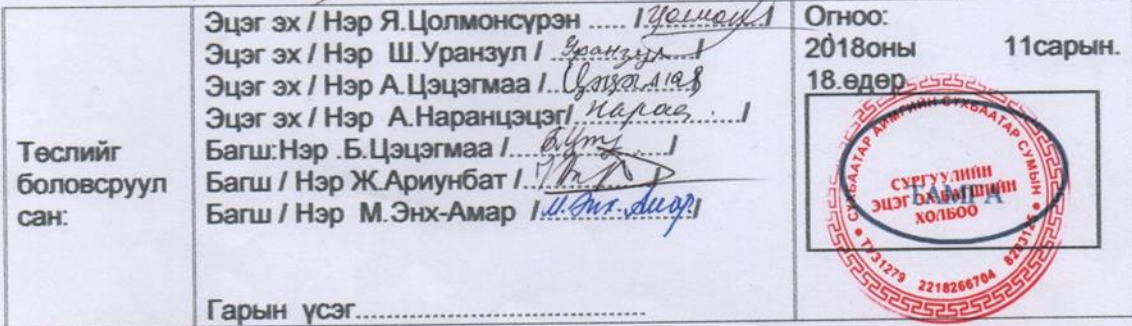 Төслийг
боловсруул
сан:
Эцэг эх / Нэр Я.Цолмонсүрэн ..... /Цолмон/
Эцэг эх / Нэр Ш.Уранзул / Уранзул /
Эцэг эх / Нэр А.Цэцэгмаа /
Эцэг эх / Нэр А.Наранцэцэг/ Наран /
Багш:Нэр .Б.Цэцэгмаа /
Багш / Нэр Ж.Ариунбат /
Багш / Нэр М.Энх-Амар /М.Энх-Амар/
Гарын үсэг
Огноо:
2018оны 11сарын.
18.өдөр
СҮХБААТАР АЙМГИЙН СҮХБААТАР СУМЫН
СУРГУУЛИЙН
ЭЦЭГ ЭХ БАГШИЙН
ХОЛБОО
ТУЗ1279 2218266704 8283125
ТАМГА